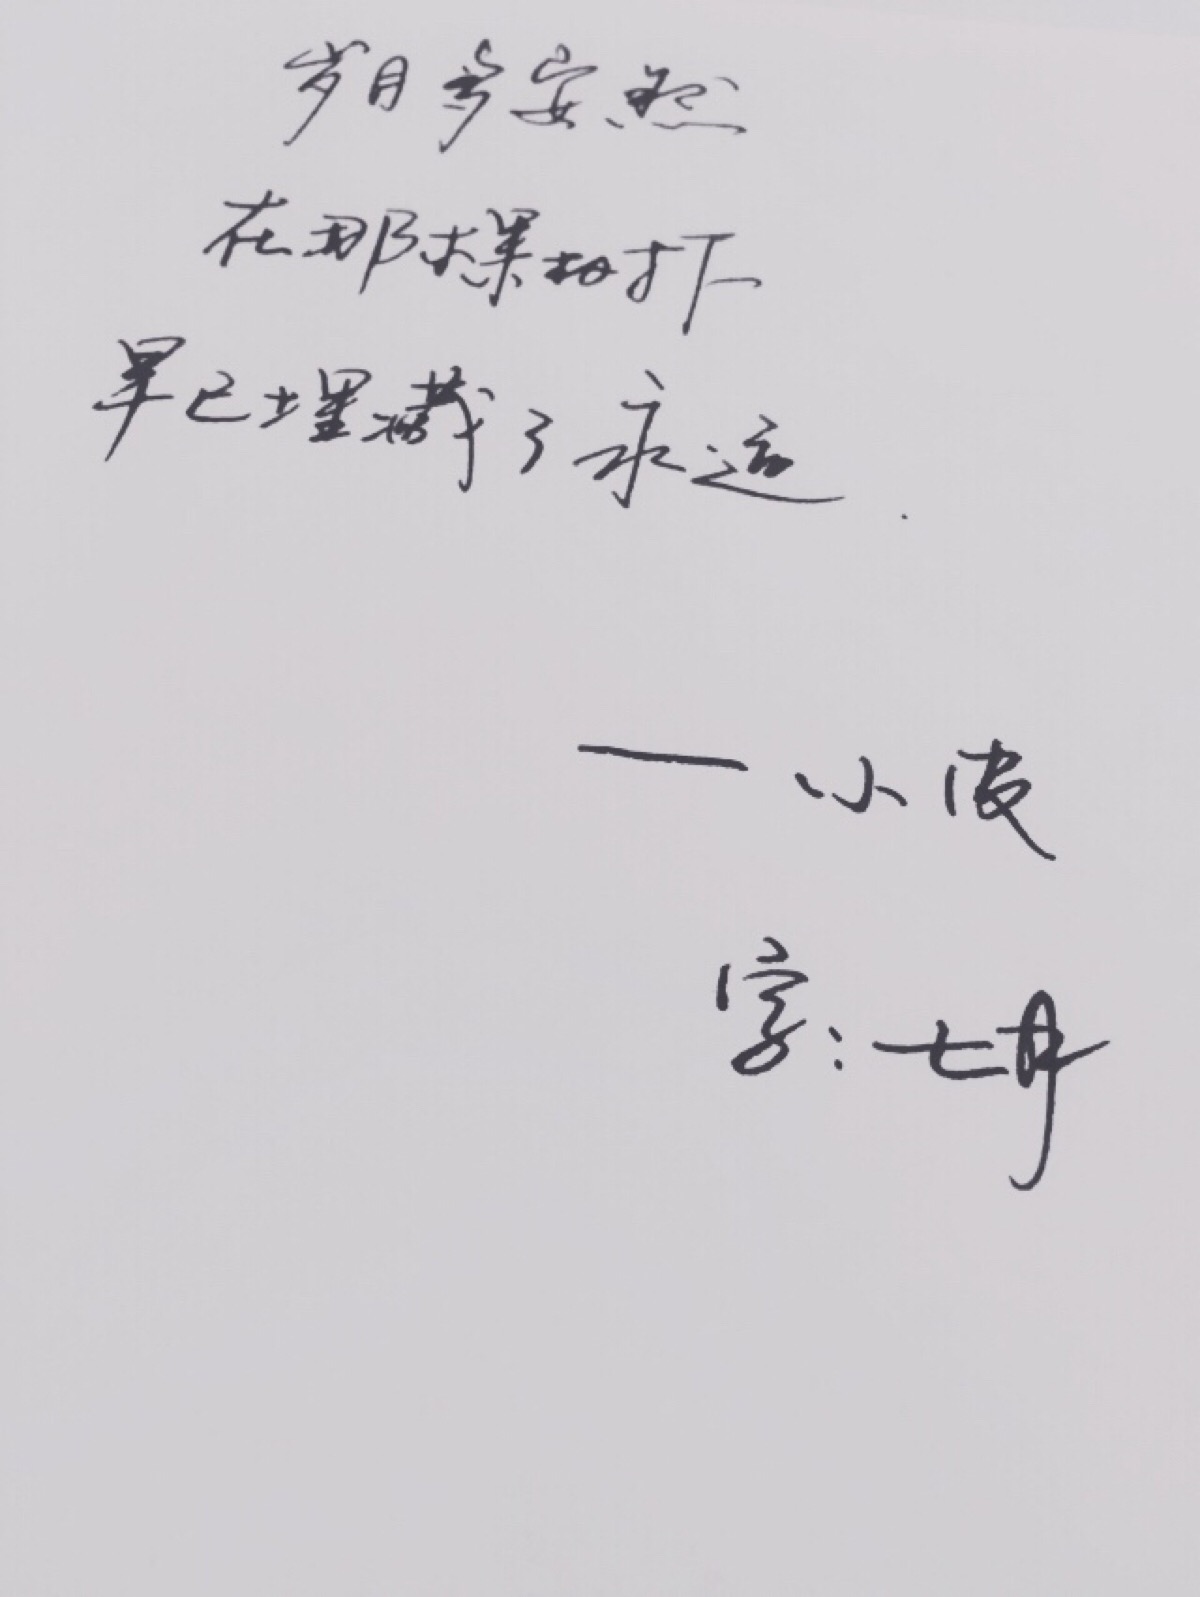 岁月多安然
在那棵树下
早已埋藏了永远.
——小波
字:七月